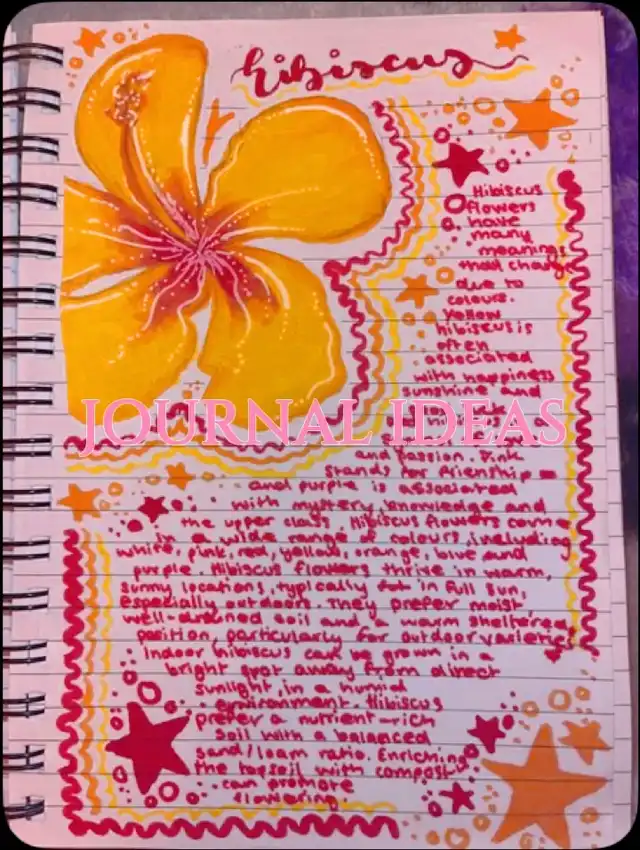 hibiscus
Hibiscus
flowers
have
many
meanings
that change
due to
colours.
Yellow
hibiscus is
often
associated
with happiness
sunshine and
JOURNAL IDEAS
and passion. Pink
stands for frienship
and purple is associated
with mystery knowledge and
the upper class. Hibiscus flowers come
in a wide range of colours, including
white, pink, red, yellow, orange, blue and
purple. Hibiscus flowers thrive in warm,
sunny locations, typically in full sun,
especially outdoors. They prefer moist,
well-drained soil and a warm sheltered
position, particularly for outdoor varieties
Indoor hibiscus can be grown in a
bright spot away from direct
sunlight in a humid
environment. Hibiscus
prefer a nutrient-rich
soil with a balanced
sand/loam ratio. Enriching
the topsoil with compost
can promote
flowering.